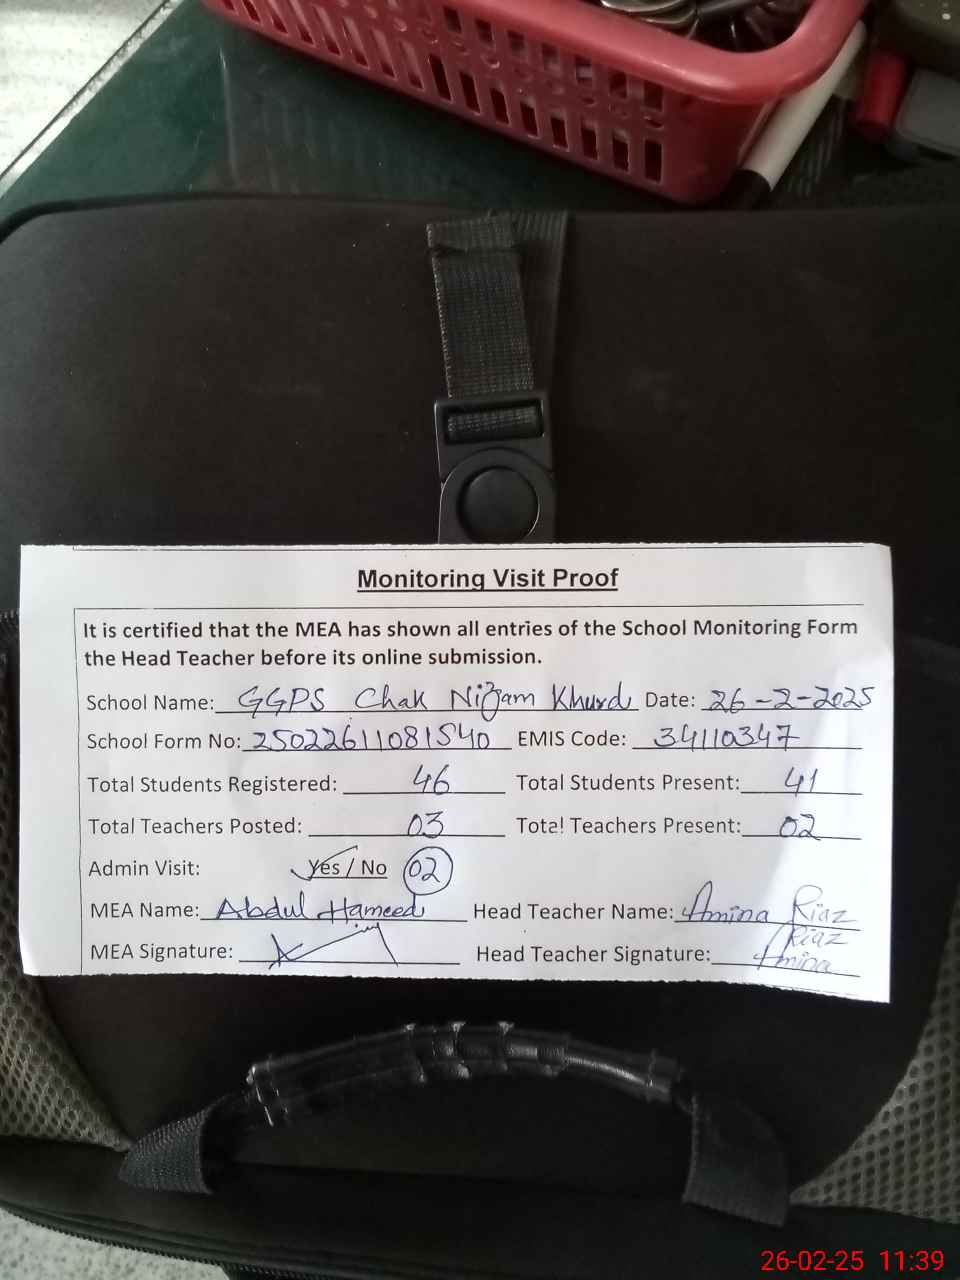 Monitoring Visit Proof
It is certified that the MEA has shown all entries of the School Monitoring Form
the Head Teacher before its online submission.
School Name: GGPS Chak Nizam Khurd Date: 26-2-2025
School Form No: 25022611081540 EMIS Code: 34110347
Total Students Registered: 46 Total Students Present: 41
Total Teachers Posted: 03 Total Teachers Present: 02
Admin Visit: Yes / No 02
MEA Name: Abdul Hameed Head Teacher Name: Amina Riaz
MEA Signature: Head Teacher Signature: Amina Riaz
26-02-25 11:39